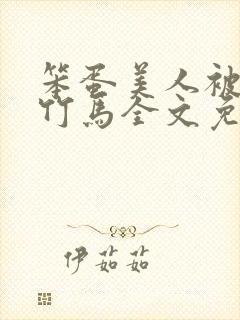 笨蛋美人被
竹马全文免
伊茹茹